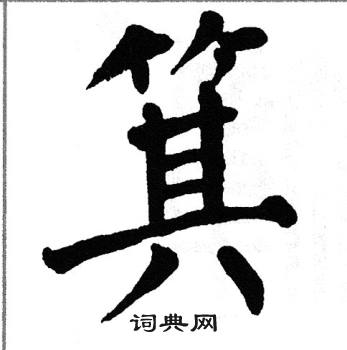 箕
词典网